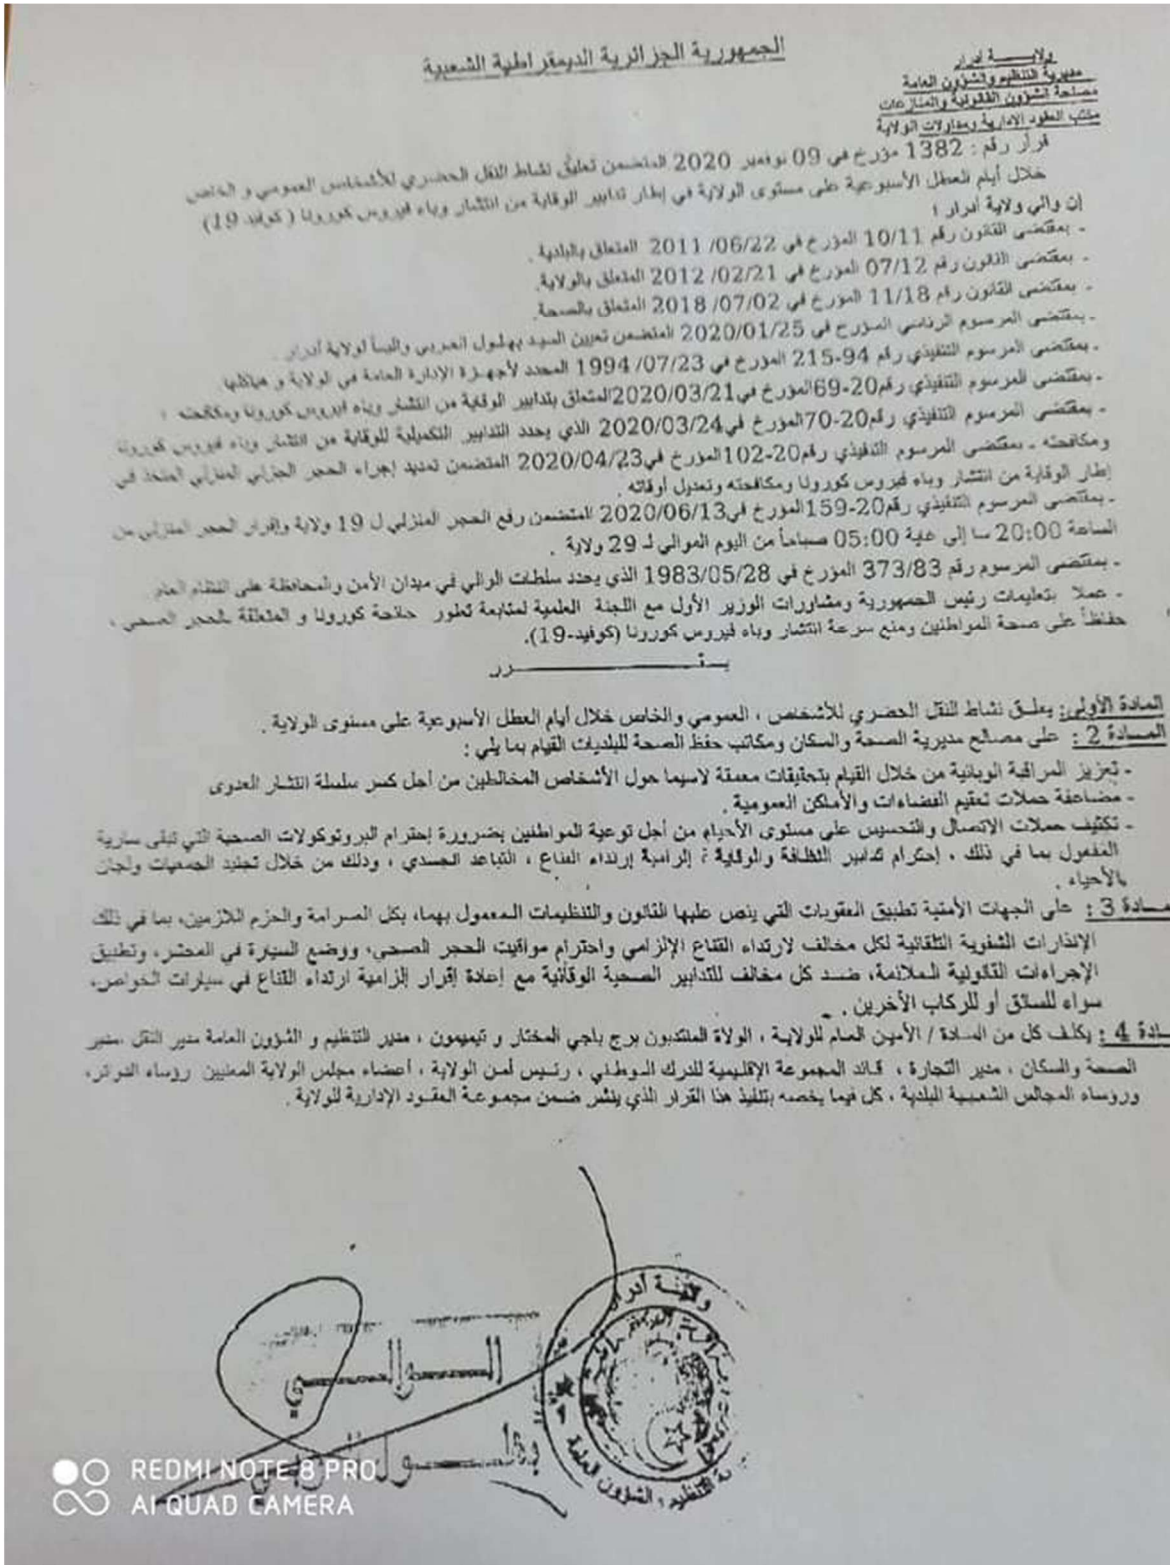 الجمهورية الجزائرية الديمقراطية الشعبية
ولايـــة أدرار
مديرية التنظيم والشؤون العامة
مصلحة الشؤون القانونية والمنازعات
مكتب العقود الإدارية ومداولات الولاية
قرار رقم : 1382 مؤرخ في 09 نوفمبر 2020 المتضمن تعليق نشاط النقل الحضري للأشخاص العمومي و الخاص
خلال أيام العطل الأسبوعية على مستوى الولاية في إطار تدابير الوقاية من انتشار وباء فيروس كورونا ( كوفيد 19)
إن والي ولاية أدرار ؛
- بمقتضى القانون رقم 10/11 المؤرخ في 2011 /06/22 المتعلق بالبلدية .
- بمقتضى القانون رقم 07/12 المؤرخ في 2012 /02/21 المتعلق بالولاية.
- بمقتضى القانون رقم 11/18 المؤرخ في 2018 /07/02 المتعلق بالصحة.
- بمقتضى المرسوم الرئاسي المؤرخ في 2020/01/25 المتضمن تعيين السيد بهلول العربي واليا لولاية أدرار .
- بمقتضى المرسوم التنفيذي رقم 94-215 المؤرخ في 1994 /07/23 المحدد لأجهزة الإدارة العامة في لولاية و هياكلها
- بمقتضى المرسوم التنفيذي رقم20-69المؤرخ في2020/03/21المتعلق بتدابير الوقاية من انتشار وباء فيروس كورونا ومكافحته ؛
- بمقتضى المرسوم التنفيذي رقم20-70المؤرخ في2020/03/24 الذي يحدد التدابير التكميلية للوقاية من انتشار وباء فيروس كورونا
ومكافحته - بمقتضى المرسوم التنفيذي رقم20-102المؤرخ في2020/04/23 المتضمن تمديد إجراء الحجر الجزئي المنزلي المتخذ في
إطار الوقاية من انتشار وباء فيروس كورونا ومكافحته وتعديل أوقاته .
- بمقتضى المرسوم التنفيذي رقم20-159المؤرخ في2020/06/13 المتضمن رفع الحجر المنزلي ل 19 ولاية وإقرار الحجر المنزلي من
الساعة 20:00 سا إلى غاية 05:00 صباحاً من اليوم الموالي لـ 29 ولاية .
- بمقتضى المرسوم رقم 373/83 المؤرخ في 1983/05/28 الذي يحدد سلطات الوالي في ميدان الأمن والمحافظة على النظام العام
- عملا بتعليمات رئيس الجمهورية ومشاورات الوزير الأول مع اللجنة العلمية لمتابعة تطور جائحة كورونا و المتعلقة بالحجر الصحي ،
حفاظاً على صحة المواطنين ومنع سرعة انتشار وباء فيروس كورونا (كوفيد-19).
يـقـــــــــــــــــــرر
المادة الأولى: يعلـق نشاط النقل الحضري للأشخاص ، العمومي والخاص خلال أيام العطل الأسبوعية على مستوى الولاية .
المـــادة 2 : على مصالح مديرية الصحة والسكان ومكاتب حفظ الصحة للبلديات القيام بما يلي :
- تعزيز المراقبة الوبائية من خلال القيام بتحقيقات معمقة لاسيما حول الأشخاص المخالطين من أجل كسر سلسلة انتشار العدوى
- مضاعفة حملات تعقيم الفضاءات والأماكن العمومية .
- تكثيف حملات الاتصال والتحسيس على مستوى الأحياء من أجل توعية المواطنين بضرورة إحترام البروتوكولات الصحية التي تبقى سارية
المفعول بما في ذلك ، إحترام تدابير النظافة والوقاية ؛ إلزامية إرتداء القناع ، التباعد الجسدي ، وذلك من خلال تجنيد الجمعيات ولجان
الأحياء .
ـمـادة 3 : على الجهات الأمنية تطبيق العقوبات التي ينص عليها القانون والتنظيمات المعمول بهما، بكل الصرامة والحزم اللازمين، بما في ذلك
الإنذارات الشفوية التلقائية لكل مخالف لارتداء القناع الإلزامي واحترام مواقيت الحجر الصحي، ووضع السيارة في المحشر، وتطبيق
الإجراءات القانونية الملائمة، ضـد كل مخالف للتدابير الصحية الوقائية مع إعادة إقرار إلزامية ارتداء القناع في سيارات الخواص،
سواء للسائق أو للركاب الآخرين .
ـادة 4 : يكلف كل من السـادة / الأمين العـام للولايـة ، الولاة المنتدبون برج باجي المختار و تيميمون ، مدير التنظيم و الشؤون العامة مدير النقل ،مدير
الصحة والسكان ، مدير التجارة ، قـائد المجموعة الإقليمية للدرك الـوطني ، رئـيس أمن الولاية ، أعضاء مجلس الولاية المعنيين رؤساء الدوائر،
ورؤساء المجالس الشعبية البلدية ، كل فيما يخصه بتنفيذ هذا القرار الذي ينشر ضمن مجموعة العقود الإدارية للولاية .
ولايـة أدرار
الـــوالـــي
REDMI NOTE 8 PRO
AI QUAD CAMERA